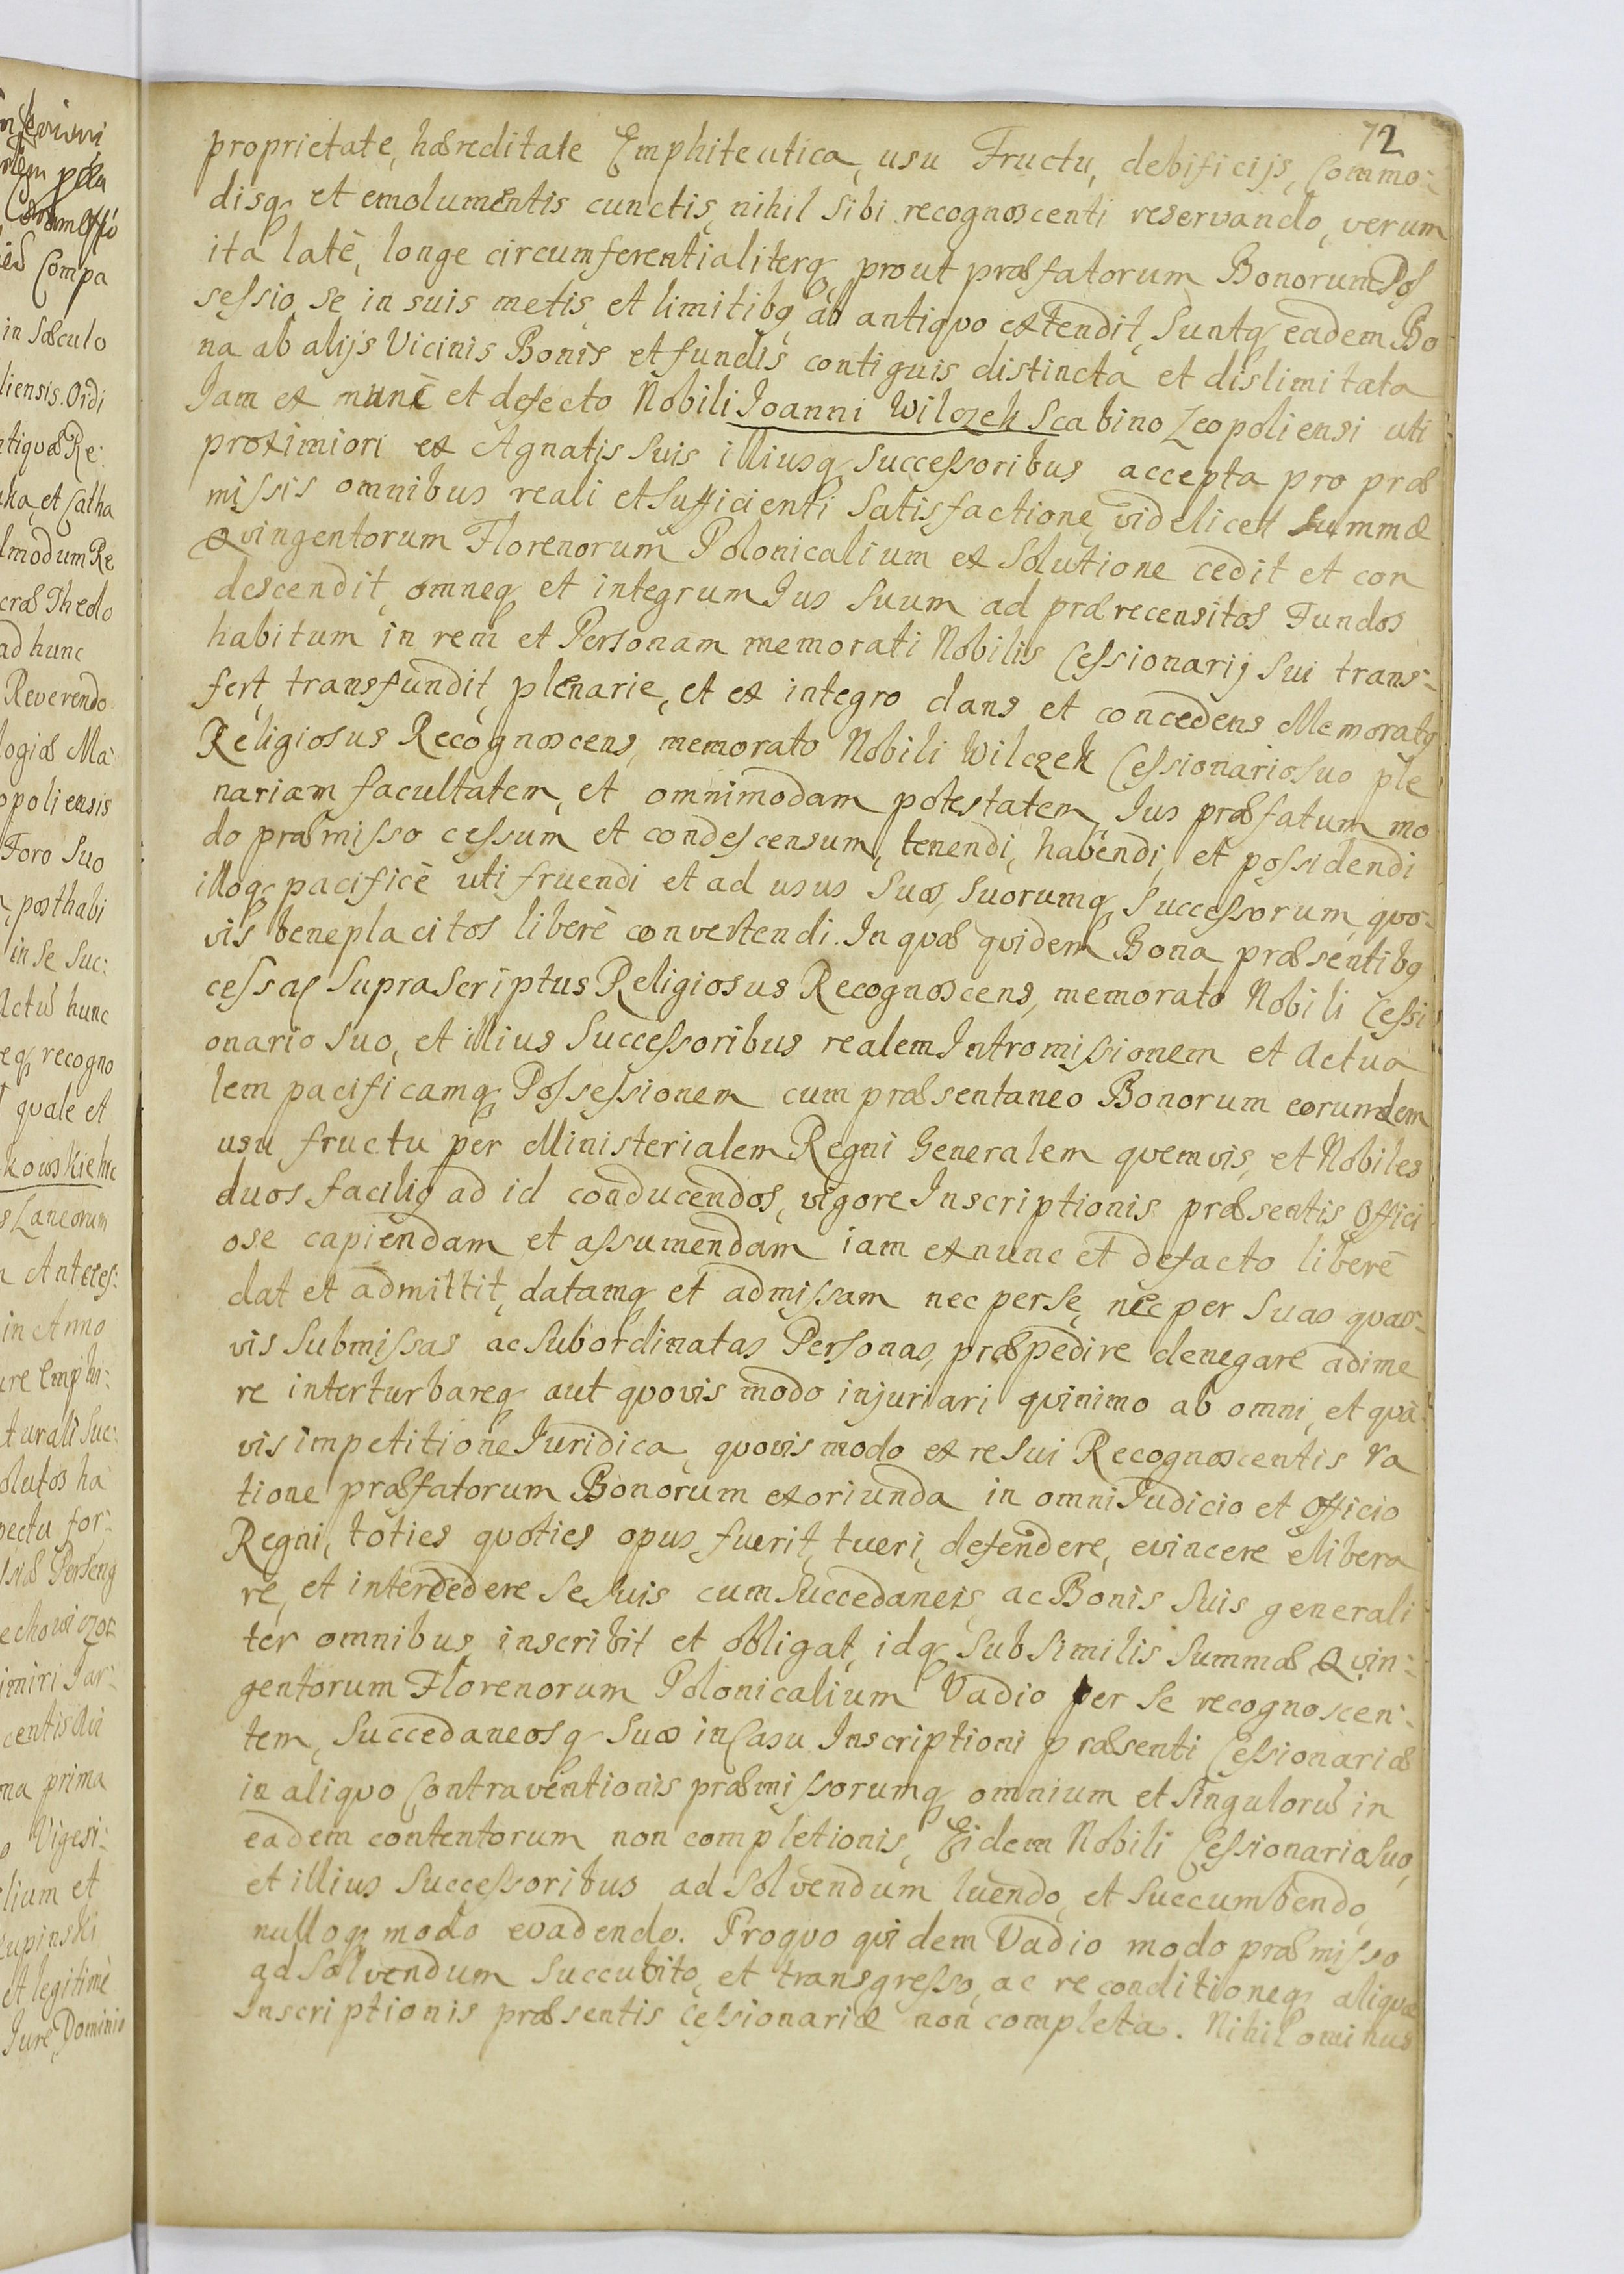 72
proprietate, hæreditate Emphiteutica, usu Fructu, debificijs, Commo:
disq́, et emolumentis cunctis, nihil sibi recognoscenti reservando, verum
ita latè, longe circumferentialiterq́, prout præfatorum Bonorum Pos
sessio, se in suis metis, et limitibq́ ab antiquo extendit, Suntq́ eadem Bo
na ab alijs Vicinis Bonis et fundis contiguis distincta et dislimitata
Iam ex nunc et defecto Nobili Joanni Wilczek Scabino Leopoliensi uti
proximiori ex Agnatis Suis illiusq́ Successoribus accepta pro præ
missis omnibus reali et Sufficienti Satisfactione, videlicet Summæ
Qvingentorum Florenorum Polonicalium ex Solutione cedit et con
descendit, omneq́ et integrum Jus Suum ad prærecensitos Fundos
habitum in rem et Personam memorati Nobilis Cessionarij Sui trans:
fert, transfundit, plenarie, et ex integro dans et concedens Memoratq
Religiosus Recognoscens, memorato Nobili Wilczek Cessionario suo ple
nariam facultatem, et omnimodam potestatem, Jus præfatum mo
do præmisso cessum et condescensum, tenendi, habendi, et possidendi
illoq́ pacificè uti fruendi et ad usus Suos, Suorumq́ Successorum quo:
vis beneplacitos liberè convertendi. In quæ quidem Bona præsentibq
cessa Suprascriptus Religiosus Recognoscens, memorato Nobili Cessi
onario Suo, et illius Successoribus realem Intromissionem et Actua
lem pacificamq́ Possessionem cum præsentaneo Bonorum eorundem
usu fructu per Ministerialem Regni Generalem quemvis, et Nobiles
duos faciliq ad id conducendos, vigore Inscriptionis præsentis Offici
ose capiendam et assumendam iam ex nunc et defacto liberè
dat et admittit, datamq́ et admissam nec per Se, nec per Suas quas:
vis Submissas ac Subordinatas Personas, præpedire denegare adime
re interturbareq́ aut quovis modo injuriari quinimo ab omni, et qua
vis impetitione Iuridica, quovis modo ex re Sui Recognoscentis ra
tione præfatorum Bonorum exoriunda in omni Iudicio et Officio
Regni, toties quoties opus fuerit, tueri, defendere, evincere elibera
re, et intercedere Se Suis cum Succedaneis, ac Bonis Suis generali
ter omnibus inscribit et obligat, idq́ Sub Similis Summæ Qvin:
gentorum Florenorum Polonicalium Vadio per Se recognoscen:
tem, Succedaneosq́ Suos in Casu Inscriptioni præsenti Cessionariæ
in aliquo Contraventionis præmissorumq́ omnium et Singulorũ in
eadem contentorum non completionis, Eidem Nobili Cessionario Suo,
et illius Successoribus ad Solvendum luendo, et Succumbendo,
nulloq́ modo evadendo. Pro quo quidem Vadio modo præmisso
ad Solvendum Succubito, et transgresso, ac re conditioneq́ aliqua
Inscriptionis præsentis Cessionariæ non completa. Nihilominus